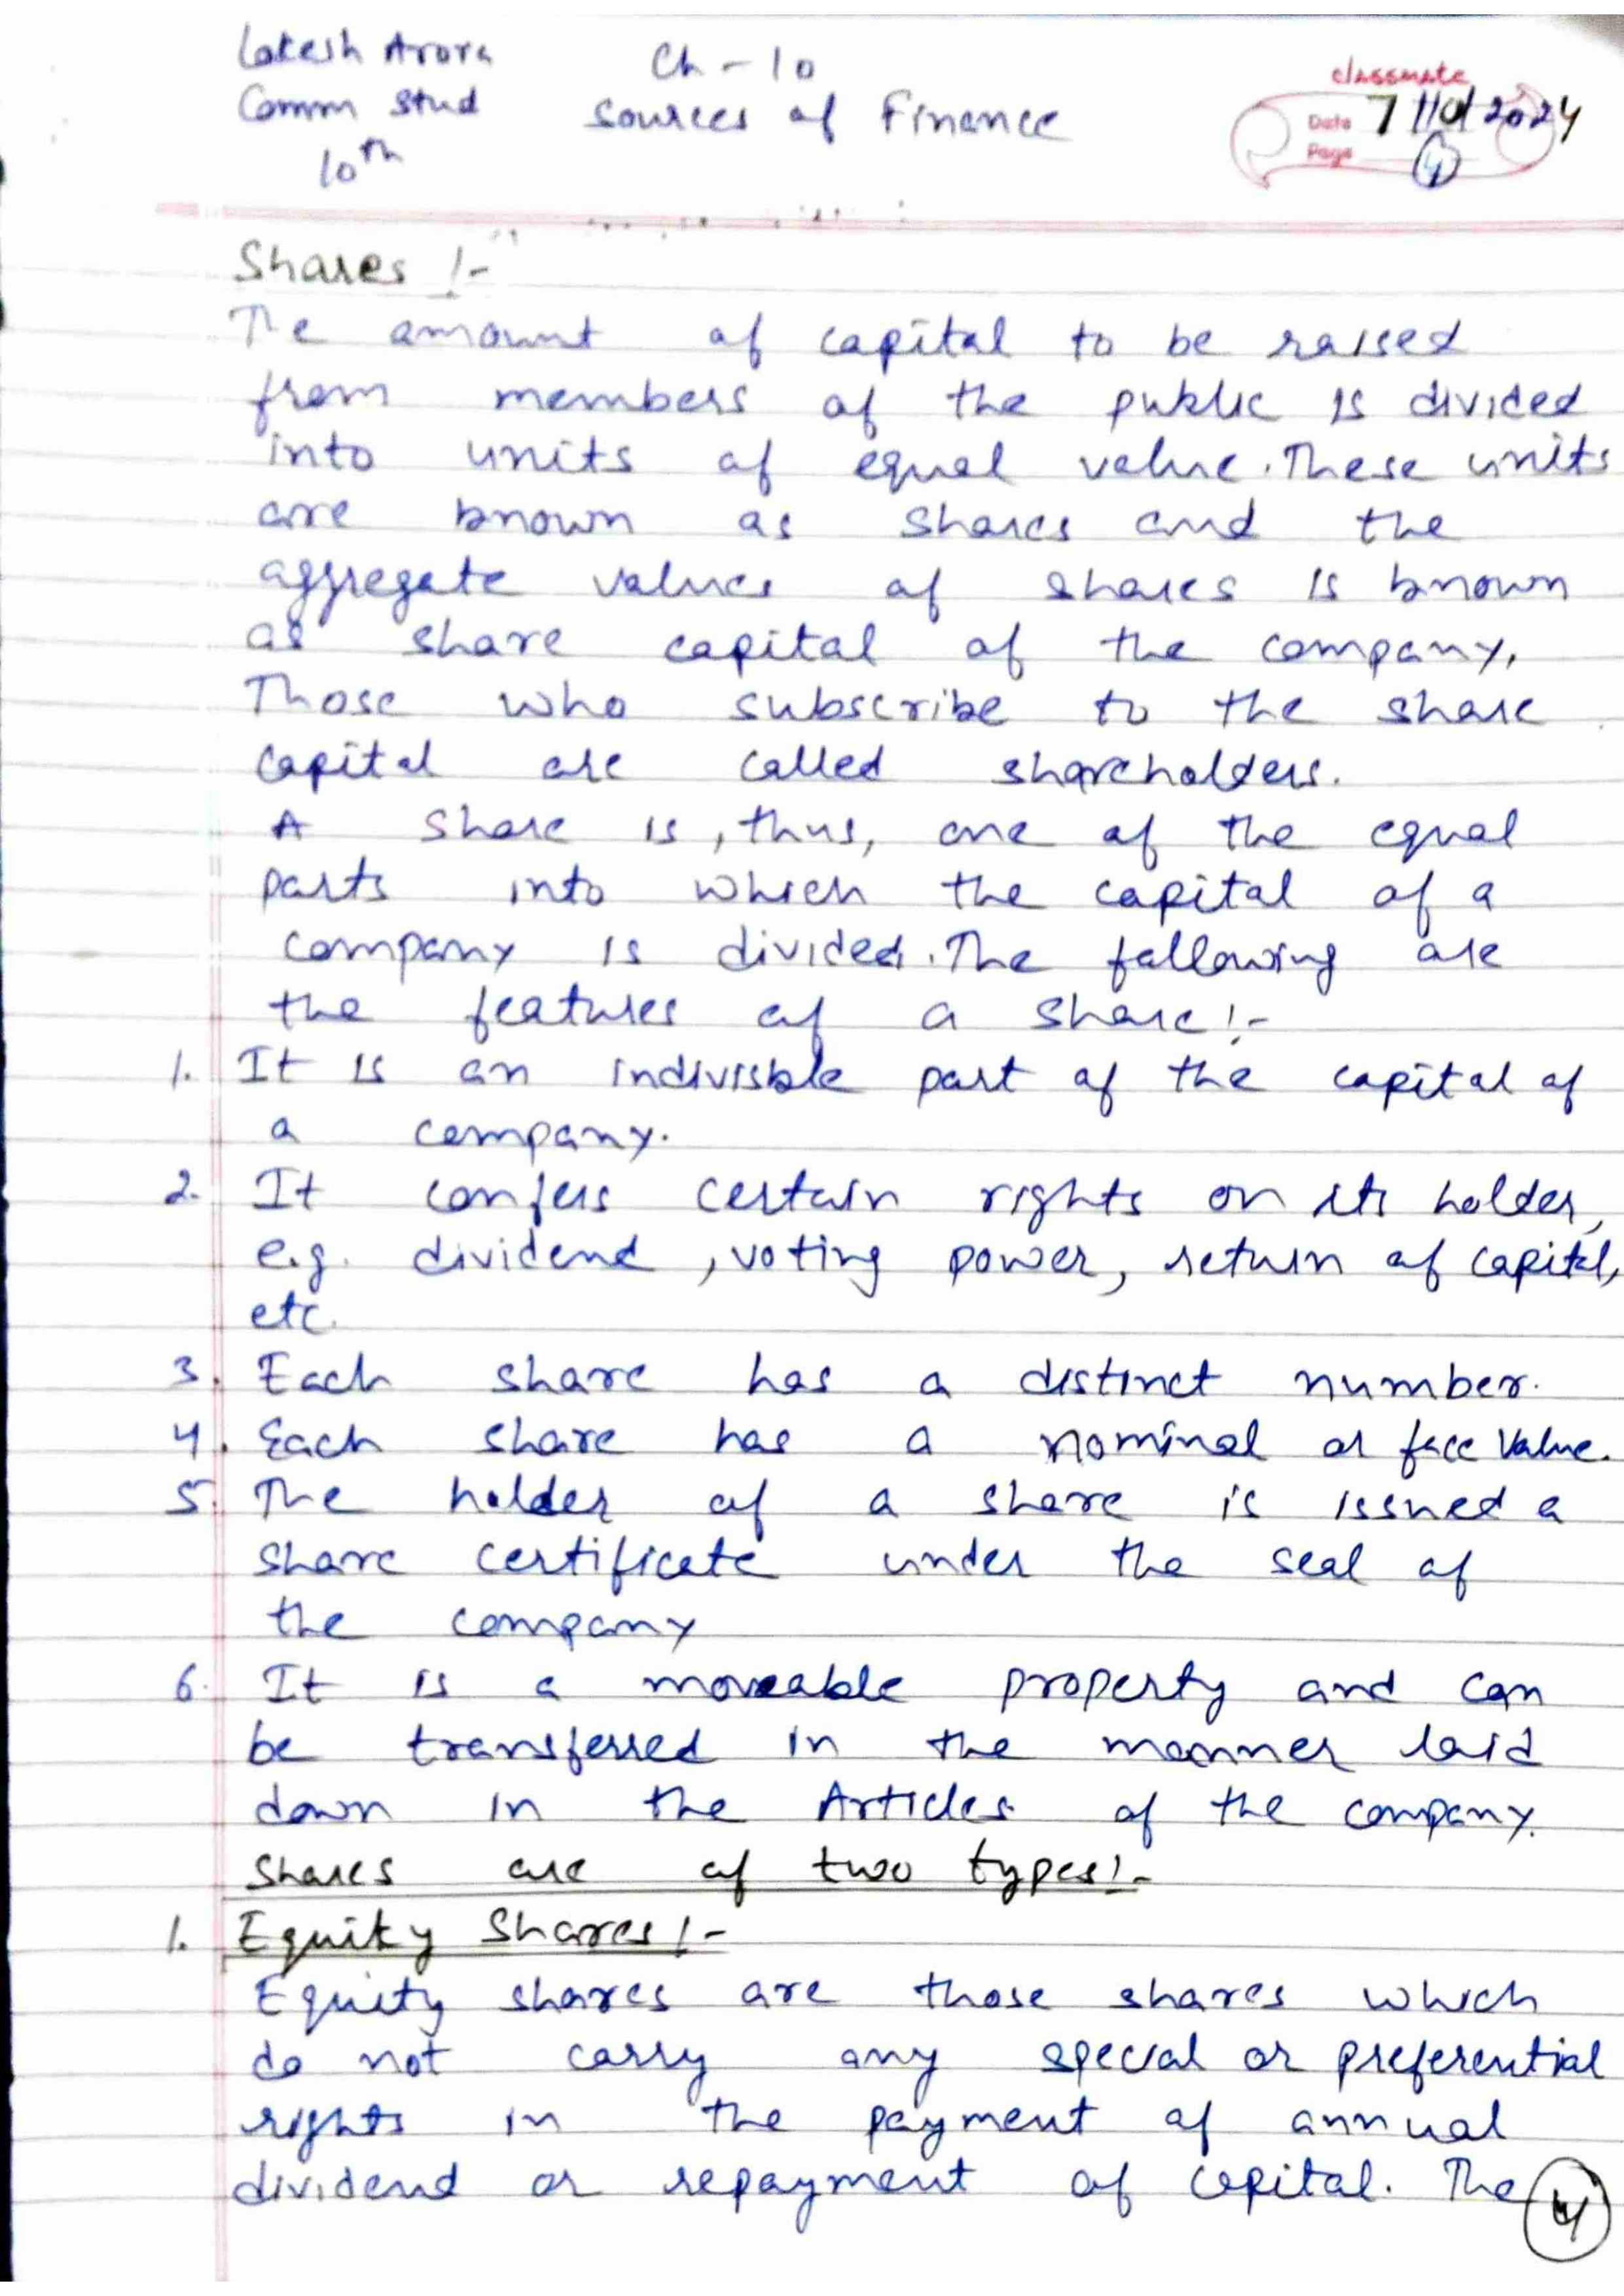 Lokesh Arora
Comm Stud
10th
Ch - 10
Sources of Finance
classmate
Date 7/10/2024
Page 4
Shares :-
The amount of capital to be raised
from members of the public is divided
into units of equal value. These units
are known as shares and the
aggregate values of shares is known
as share capital of the company.
Those who subscribe to the share
capital are called shareholders.
A share is, thus, one of the equal
parts into which the capital of a
company is divided. The following are
the features of a share :-
1. It is an indivisble part of the capital of
a company.
2. It confers certain rights on its holder,
e.g. dividend, voting power, return of capital,
etc.
3. Each share has a distinct number.
4. Each share has a nominal or face value.
5. The holder of a share is issued a
share certificate under the seal of
the company
6. It is a moveable property and can
be transferred in the manner laid
down in the Articles of the company.
Shares are of two types :-
1. Equity Shares :-
Equity shares are those shares which
do not carry any special or preferential
rights in the payment of annual
dividend or repayment of capital. The
4